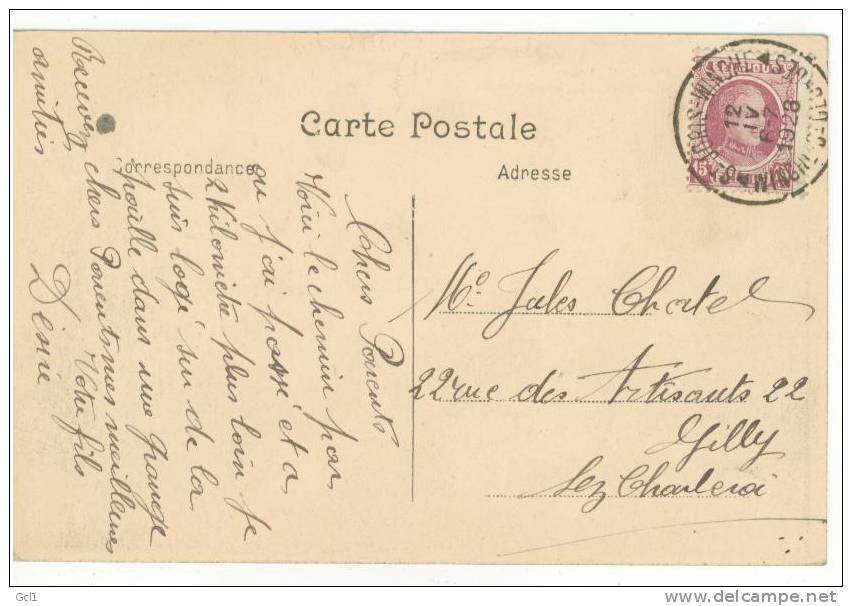 Carte Postale
Correspondance
Adresse
Chers Parents
Voici le chemin par
ou j'ai passé et a
2 kilometre plus loin je
suis logé sur de la
paille dans une grange
Recevez chers Parents mes meilleures
amitiés
Votre fils
Désiré
Mr. Jules Chatel
22 rue des Artisants 22
Gilly
Lez Charleroi
12
IV
6-7
1928
Gcl1
www.delcampe.net